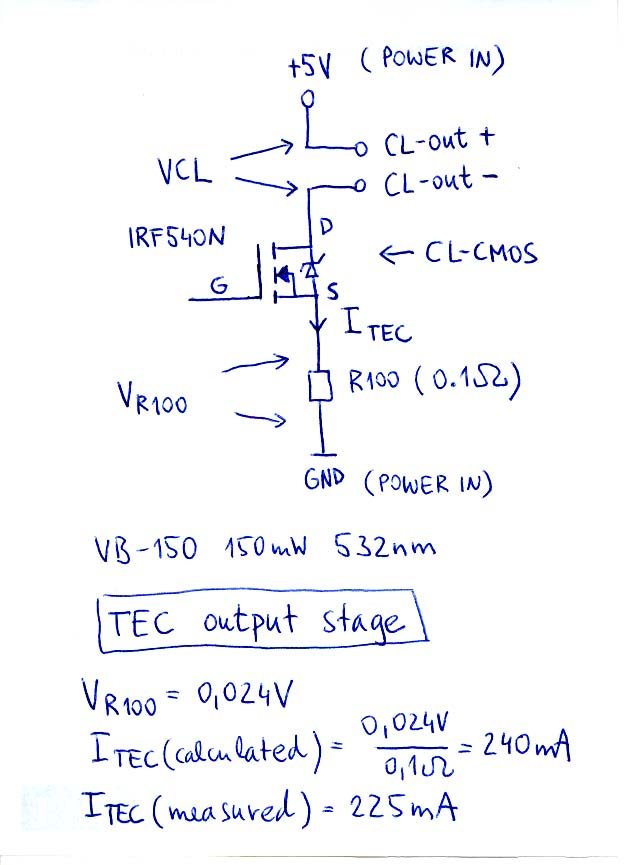 +5V (POWER IN)
CL-out +
VCL
CL-out -
D
IRF540N
← CL-CMOS
G
S
I TEC
R100 (0.1Ω)
VR100
GND (POWER IN)
VB-150 150mW 532nm
TEC output stage
VR100 = 0,024V
ITEC (calculated) = 0,024V / 0,1Ω = 240mA
ITEC (measured) = 225mA